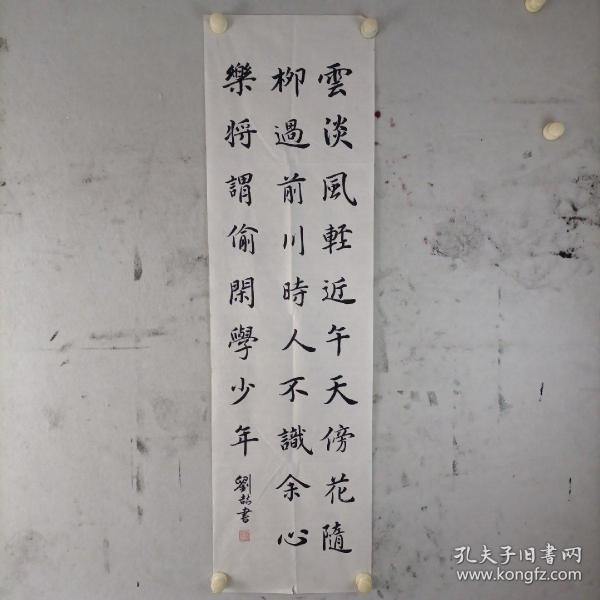 雲淡風軽近午天傍花隨
柳過前川時人不識余心
樂将謂偷閑學少年
劉喆書
孔夫子旧书网
www.kongfz.com